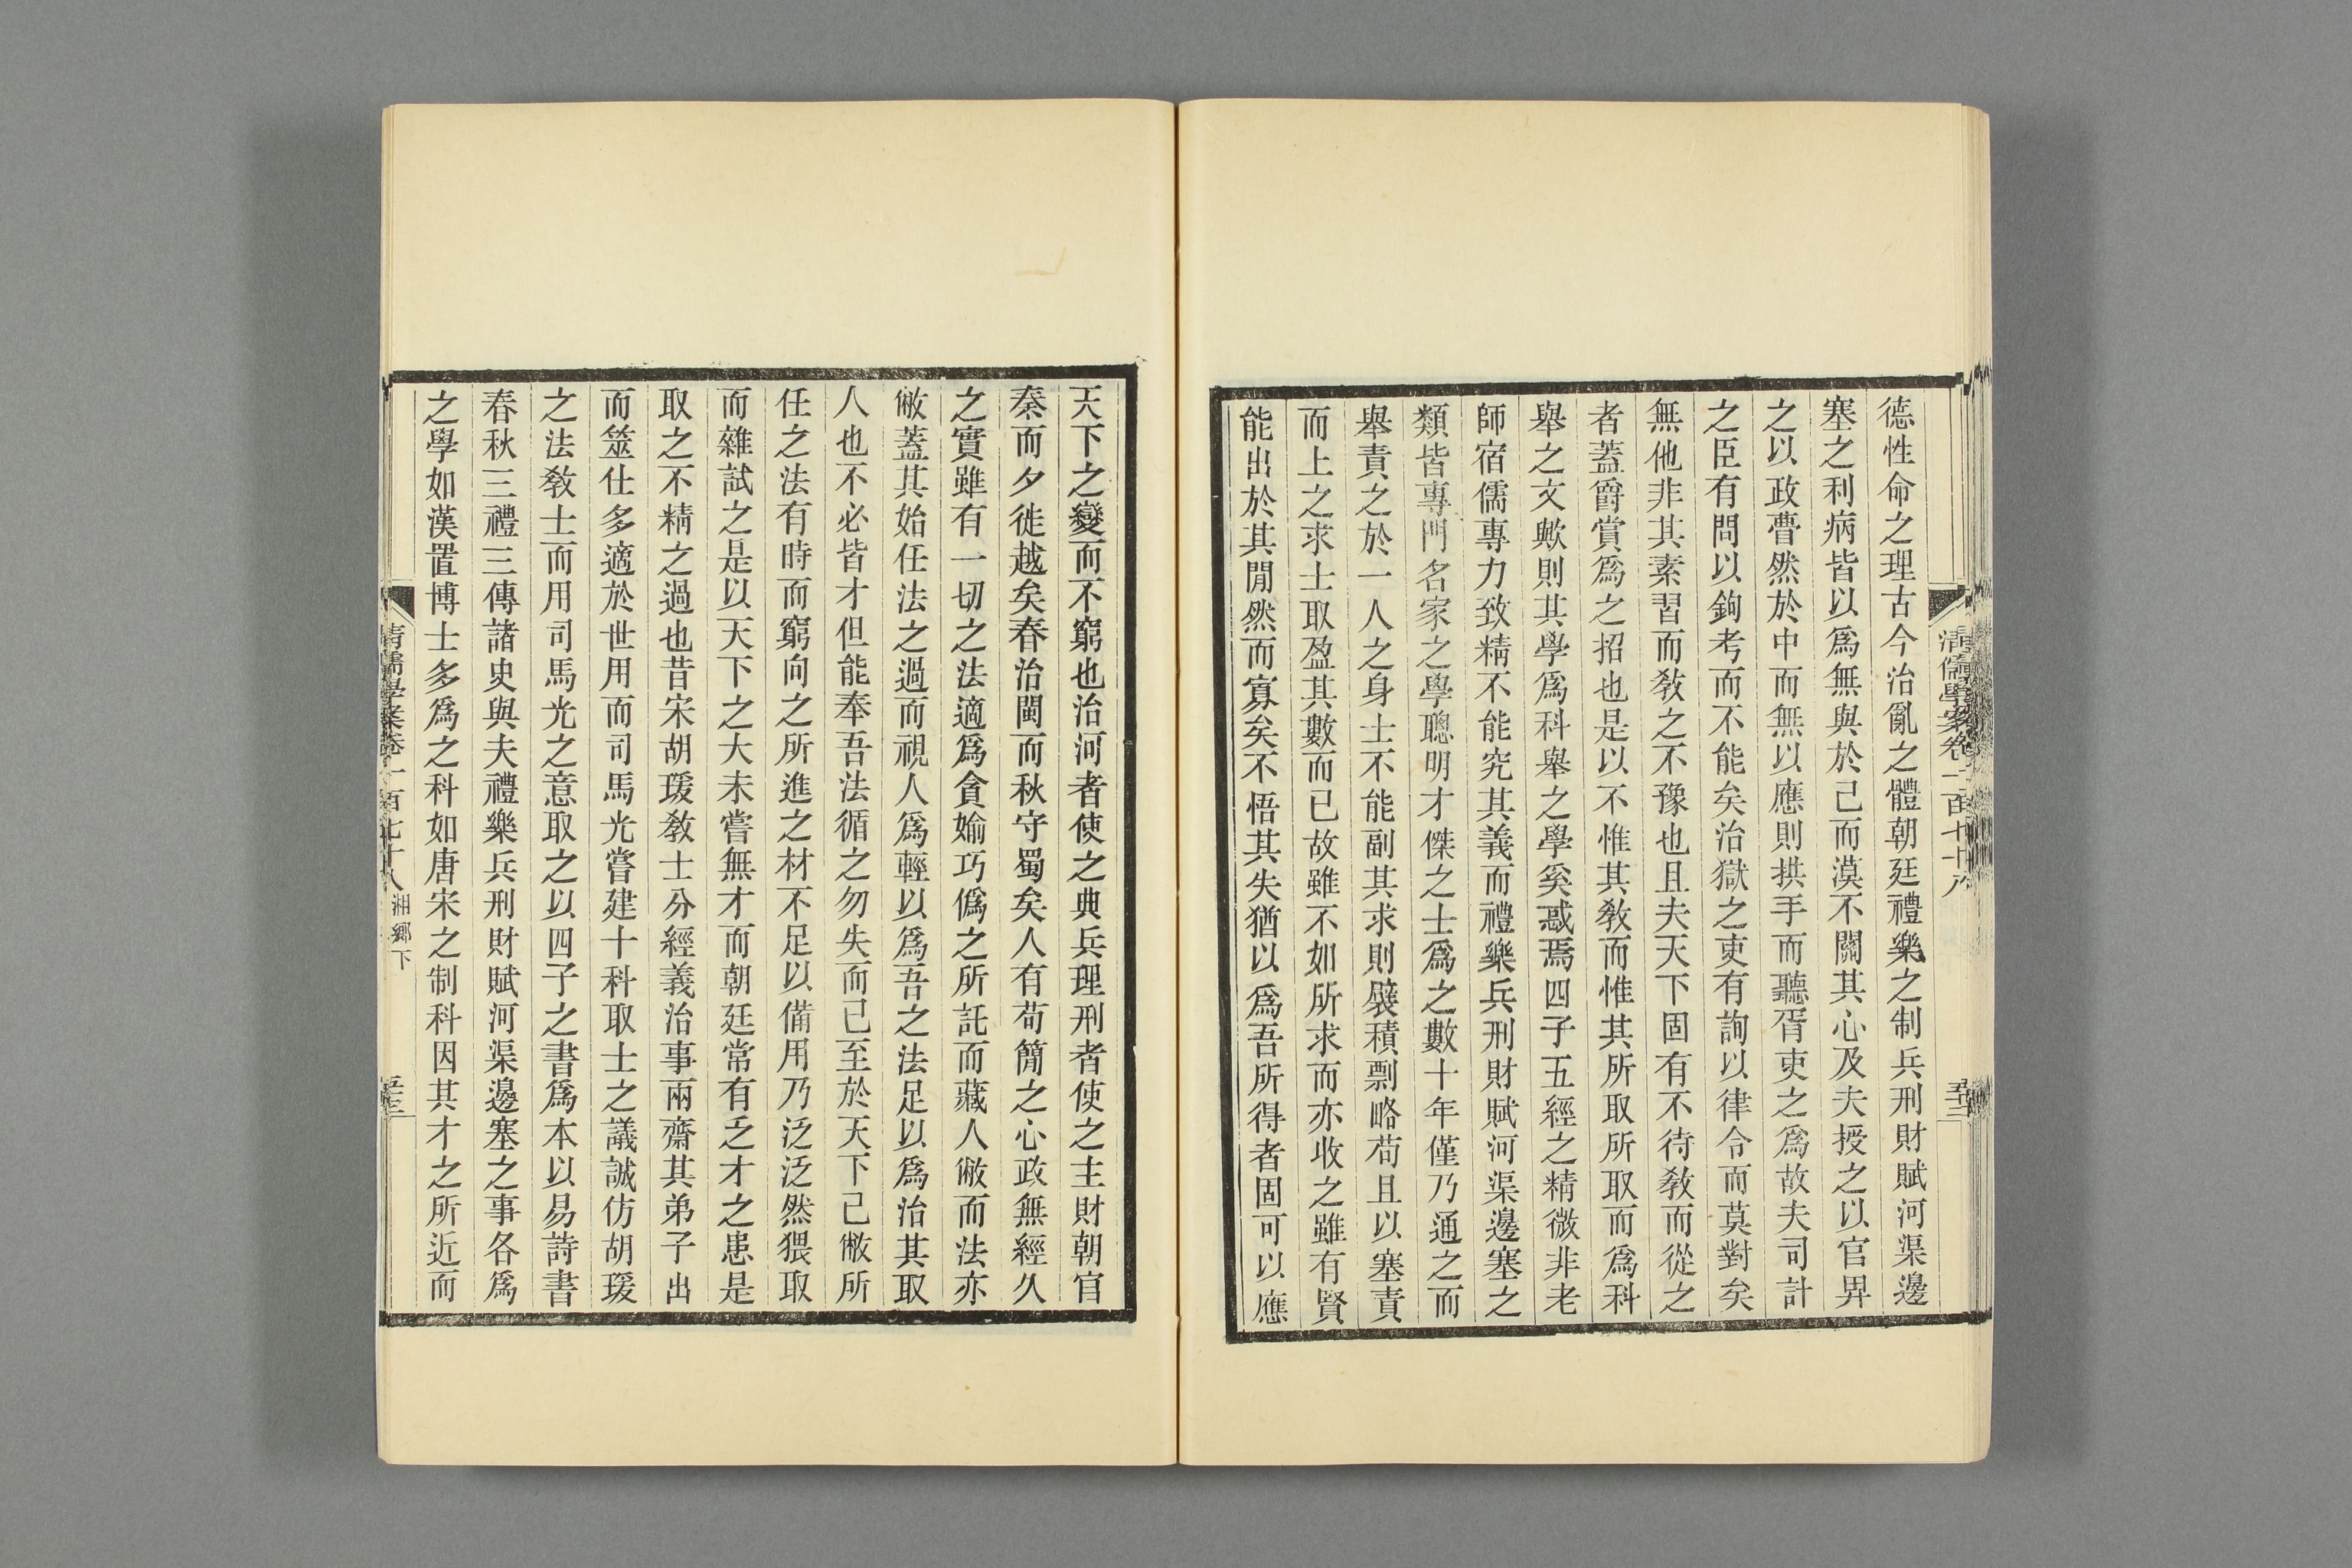 德性命之理古今治亂之體朝廷禮樂之制兵刑財賦河渠邊
塞之利病皆以爲無與於己而漠不關其心及夫授之以官畀
之以政瞢然於中而無以應則拱手而聽胥吏之爲故夫司計
之臣有問以鉤考而不能矣治獄之吏有詢以律令而莫對矣
無他非其素習而敎之不豫也且夫天下固有不待敎而從之
者蓋爵賞爲之招也是以不惟其敎而惟其所取所取而爲科
舉之文歟則其學爲科舉之學奚惑焉四子五經之精微非老
師宿儒專力致精不能究其義而禮樂兵刑財賦河渠邊塞之
類皆專門名家之學聰明才傑之士爲之數十年僅乃通之而
舉責之於一人之身士不能副其求則襞積剽略苟且以塞責
而上之求士取盈其數而已故雖不如所求而亦收之雖有賢
能出於其閒然而寡矣不悟其失猶以爲吾所得者固可以應
清儒學案卷一百七十八
天下之變而不窮也治河者使之典兵理刑者使之主財朝官
秦而夕徙越矣春治閩而秋守蜀矣人有苟簡之心政無經久
之實雖有一切之法適爲貪婾巧僞之所託而藏人敝而法亦
敝蓋其始任法之過而視人爲輕以爲吾之法足以爲治其取
人也不必皆才但能奉吾法循之勿失而已至於天下已敝所
任之法有時而窮向之所進之材不足以備用乃泛泛然猥取
而雜試之是以天下之大未嘗無才而朝廷常有乏才之患是
取之不精之過也昔宋胡瑗敎士分經義治事兩齋其弟子出
而筮仕多適於世用而司馬光嘗建十科取士之議誠仿胡瑗
之法敎士而用司馬光之意取之以四子之書爲本以易詩書
春秋三禮三傳諸史與夫禮樂兵刑財賦河渠邊塞之事各爲
之學如漢置博士多爲之科如唐宋之制科因其才之所近而
清儒學案卷一百七十八 湘鄉下